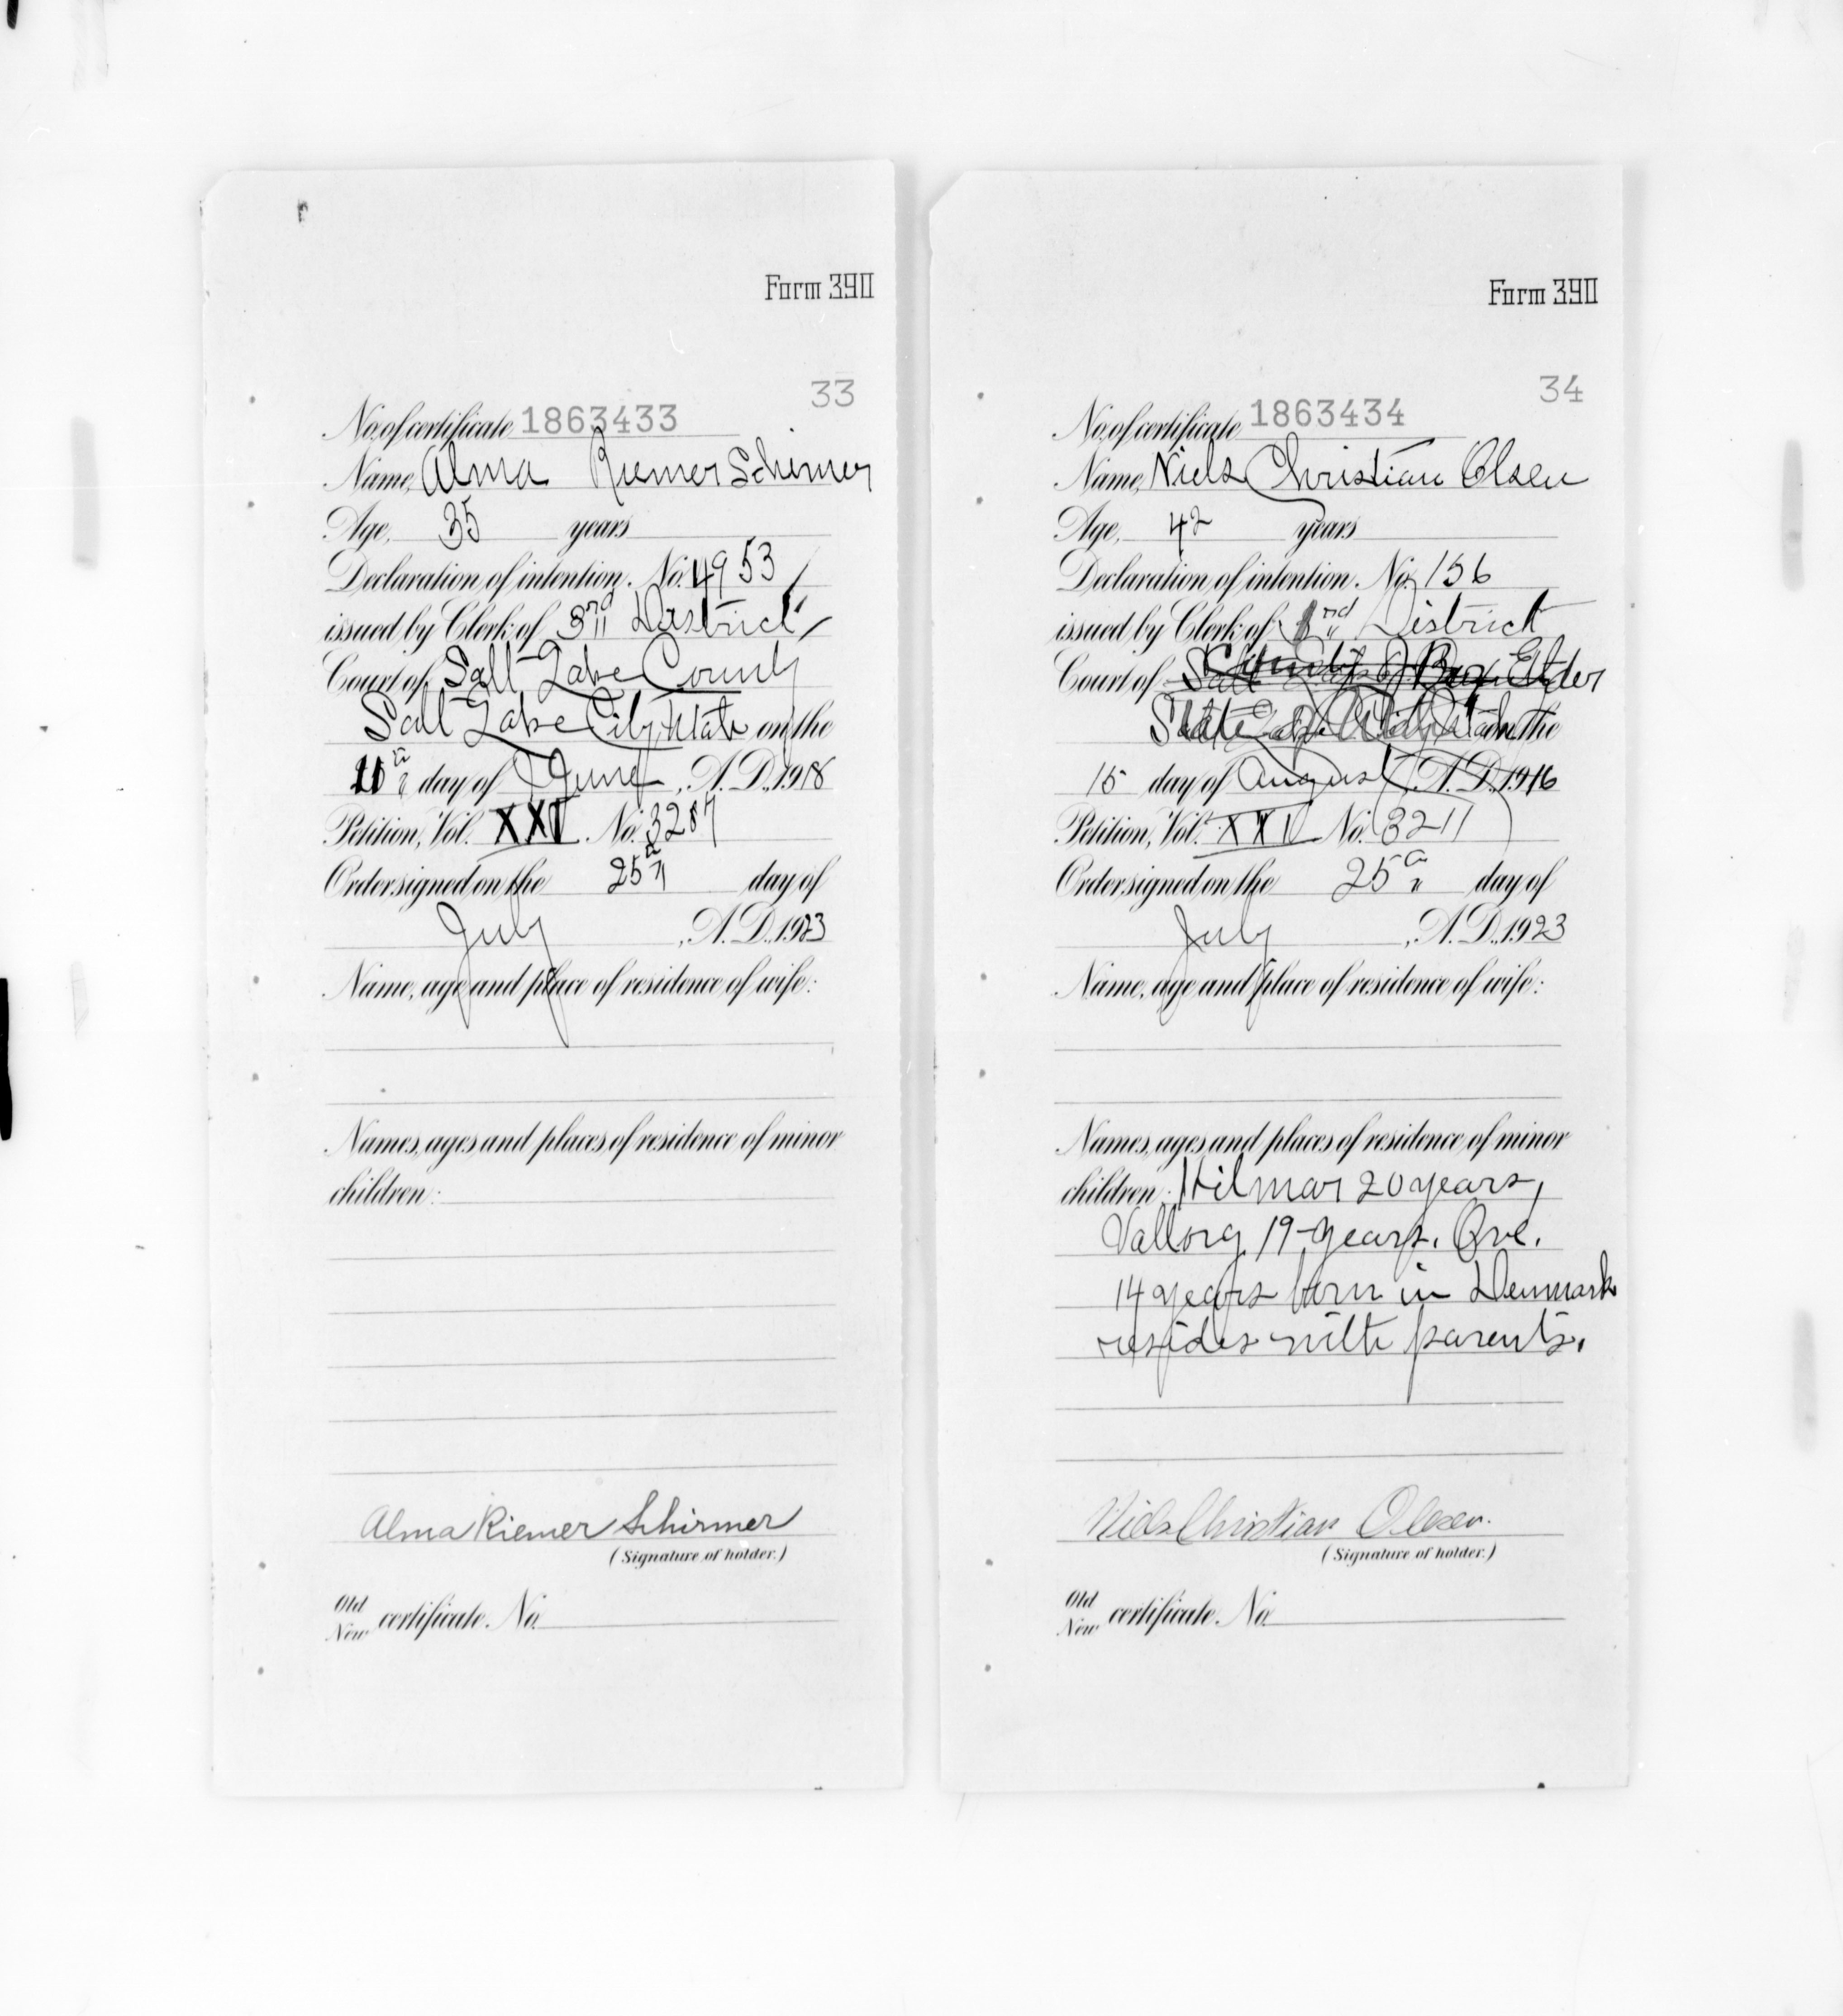 Form 390
33
No. of certificate 1863433
Name, Alma Riemer Schirmer
Age, 35 years
Declaration of intention. No. 4953
issued by Clerk of 3rd District
Court of Salt Lake County
Salt Lake City, Utah on the
day of June, A. D., 1918
Petition, Vol. XXV No. 3287
Order signed on the 25th day of
July, A. D., 1923
Name, age and place of residence of wife:
Names, ages and places of residence of minor
children:
Alma Riemer Schirmer
(Signature of holder.)
Old
New certificate. No.
Form 390
34
No. of certificate 1863434
Name, Niels Christian Olsen
Age, 42 years
Declaration of intention. No. 156
issued by Clerk of District
Court of Box Elder
on the
15 day of August, A. D., 1916
Petition, Vol. XXV No. 3211
Order signed on the 25th day of
July, A. D., 1923
Name, age and place of residence of wife:
Names, ages and places of residence of minor
children: Hilmar 20 years,
19 years. Ove.
14 years born in Denmark
resides with parents.
Niels Christian Olsen.
(Signature of holder.)
Old
New certificate. No.